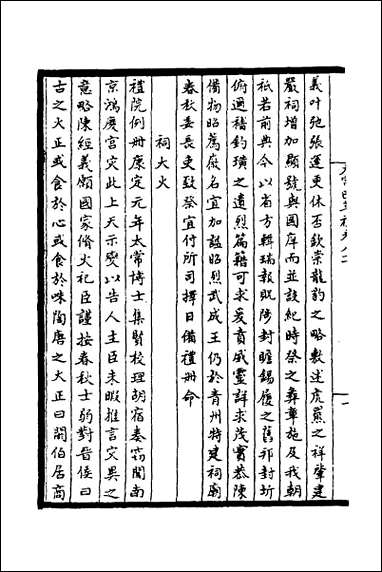 義叶弛張運更休否欽崇龍豹之略數述虎羆之祥肇建
嚴祠增加顯號與國庠而並設紀時祭之彝章施及我朝
祇若前典今以省方輯瑞報既陟封瞻錫履之舊祁封圻
俯邇稽釣璜之遺烈篇籍可求爰賁威靈詳求茂實恭陳
備物昭薦廢名宜加謚昭烈武成王仍於青州特建祠廟
春秋委長吏致祭宜付所司擇日備禮册命
祠大火
禮院例册康定元年太常博士集賢校理胡宿奏竊聞南
京鴻慶宮灾此上天示變以告人主臣未暇推言灾異之
意略陳經義願國家脩火祀臣謹按春秋士弱對晉侯曰
古之火正或食於心或食於咮陶唐之火正曰閼伯居商